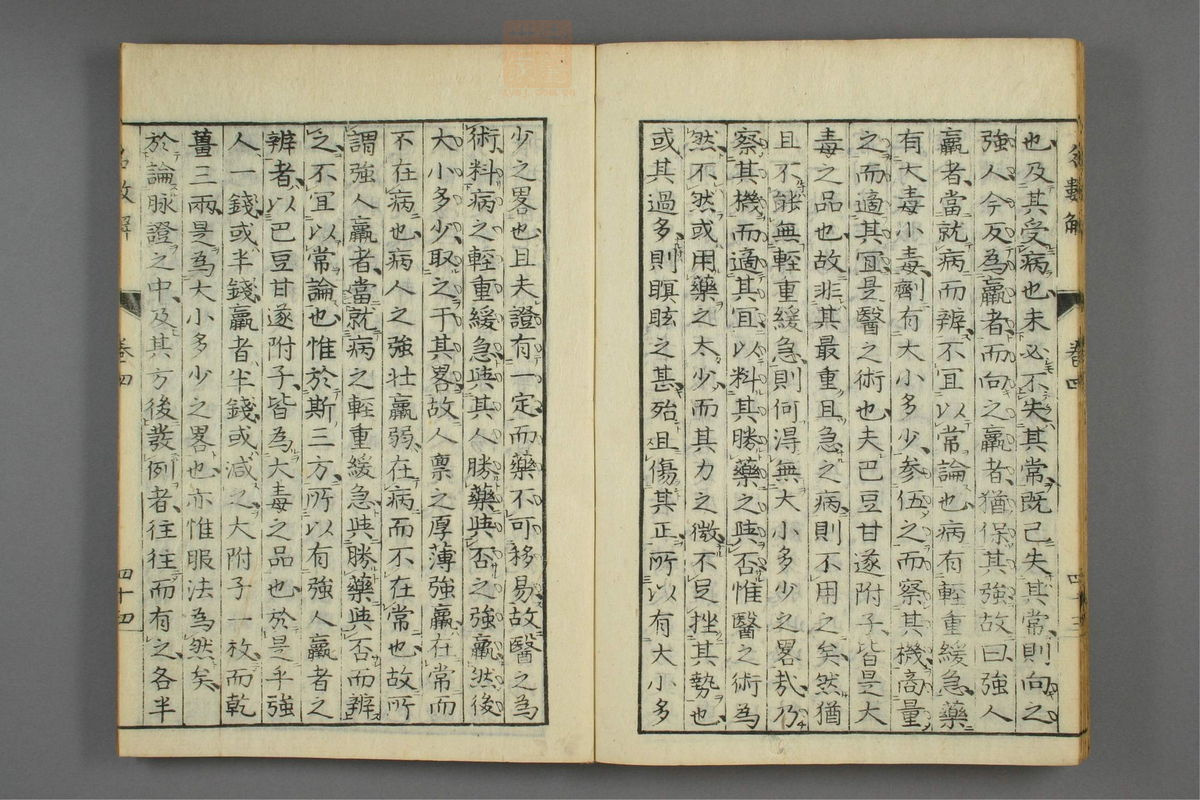 也及其受病也未必不失其常既已失其常則向之
強人今反為羸者而向之羸者猶保其強故曰強人
羸者當就病而辨不冝以常論也病有輕重緩急藥
有大毒小毒劑有大小多少參伍之而察其機商量
之而適其冝是醫之術也夫巴豆甘遂附子皆是大
毒之品也故非其最重且急之病則不用之矣然猶
且不能無輕重緩急則何得無大小多少之畧哉乃
察其機而適其冝以料其勝藥之與否惟醫之術為
然不然或用藥之太少而其力之微不足挫其勢也
或其過多則瞑眩之甚殆且傷其正所以有大小多
少之畧也且夫證有一定而藥不可移易故醫之為
術料病之輕重緩急與其人勝藥與否之強羸然後
大小多少取之于其畧故人稟之厚薄強羸在常而
不在病也病人之強壯羸弱在病而不在常也故所
謂強人羸者當就病之輕重緩急與勝藥與否而辨
之不冝以常論也惟於斯三方所以有強人羸者之
辨者以巴豆甘遂附子皆為大毒之品也於是乎強
人一錢或半錢羸者半錢或減之大附子一枚而乾
薑三兩是為大小多少之畧也亦惟服法為然矣
於論脉證之中及其方後發例者往往而有之各半
名數解
卷四
四十四